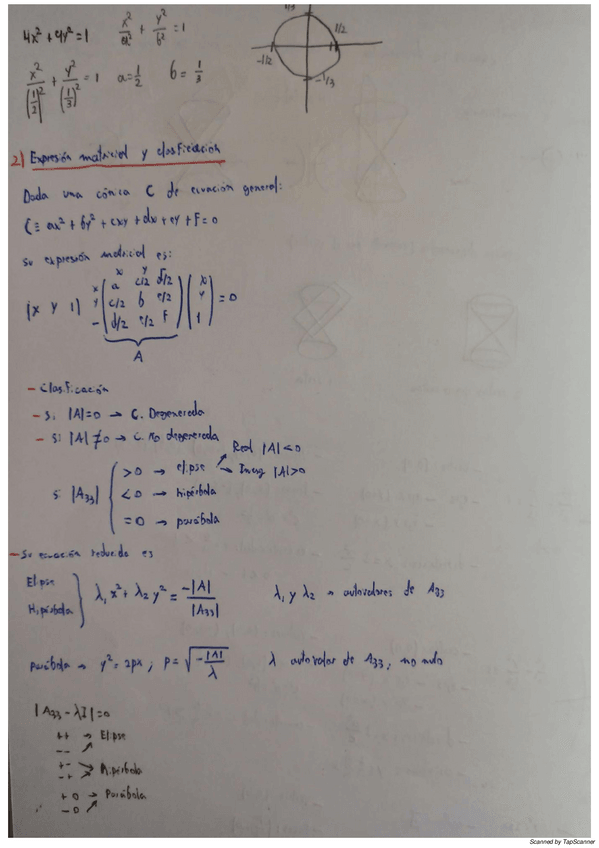 4x² + 4y² = 1    x²/a² + y²/b² = 1
1/3
1/2
-1/2
-1/3
x²/(1/2)² + y²/(1/3)² = 1    a = 1/2    b = 1/3
2) Expresión matricial y clasificación
Dada una cónica C de ecuación general:
C ≡ ax² + by² + cxy + dx + ey + F = 0
su expresión matricial es:
x y
(x y 1) x (a c/2 d/2) (x)
y (c/2 b e/2) (y) = 0
- (d/2 e/2 F) (1)
A
- Clasificación
- Si |A| = 0 → C. Degenerada
- Si |A| ≠ 0 → C. No degenerada
si |A₃₃| > 0 → elipse → Real |A| < 0
→ Imag |A| > 0
< 0 → hipérbola
= 0 → parábola
- Su ecuación reducida es
Elipse
Hipérbola } λ₁x² + λ₂y² = -|A|/|A₃₃|    λ₁ y λ₂ → autovalores de A₃₃
parábola → y² = 2px ; p = √(-|A|/λ)    λ autovalor de A₃₃, no nulo
|A₃₃ - λI| = 0
++ → Elipse
--
+- → Hipérbola
-+
+0 → Parábola
-0
Scanned by TapScanner